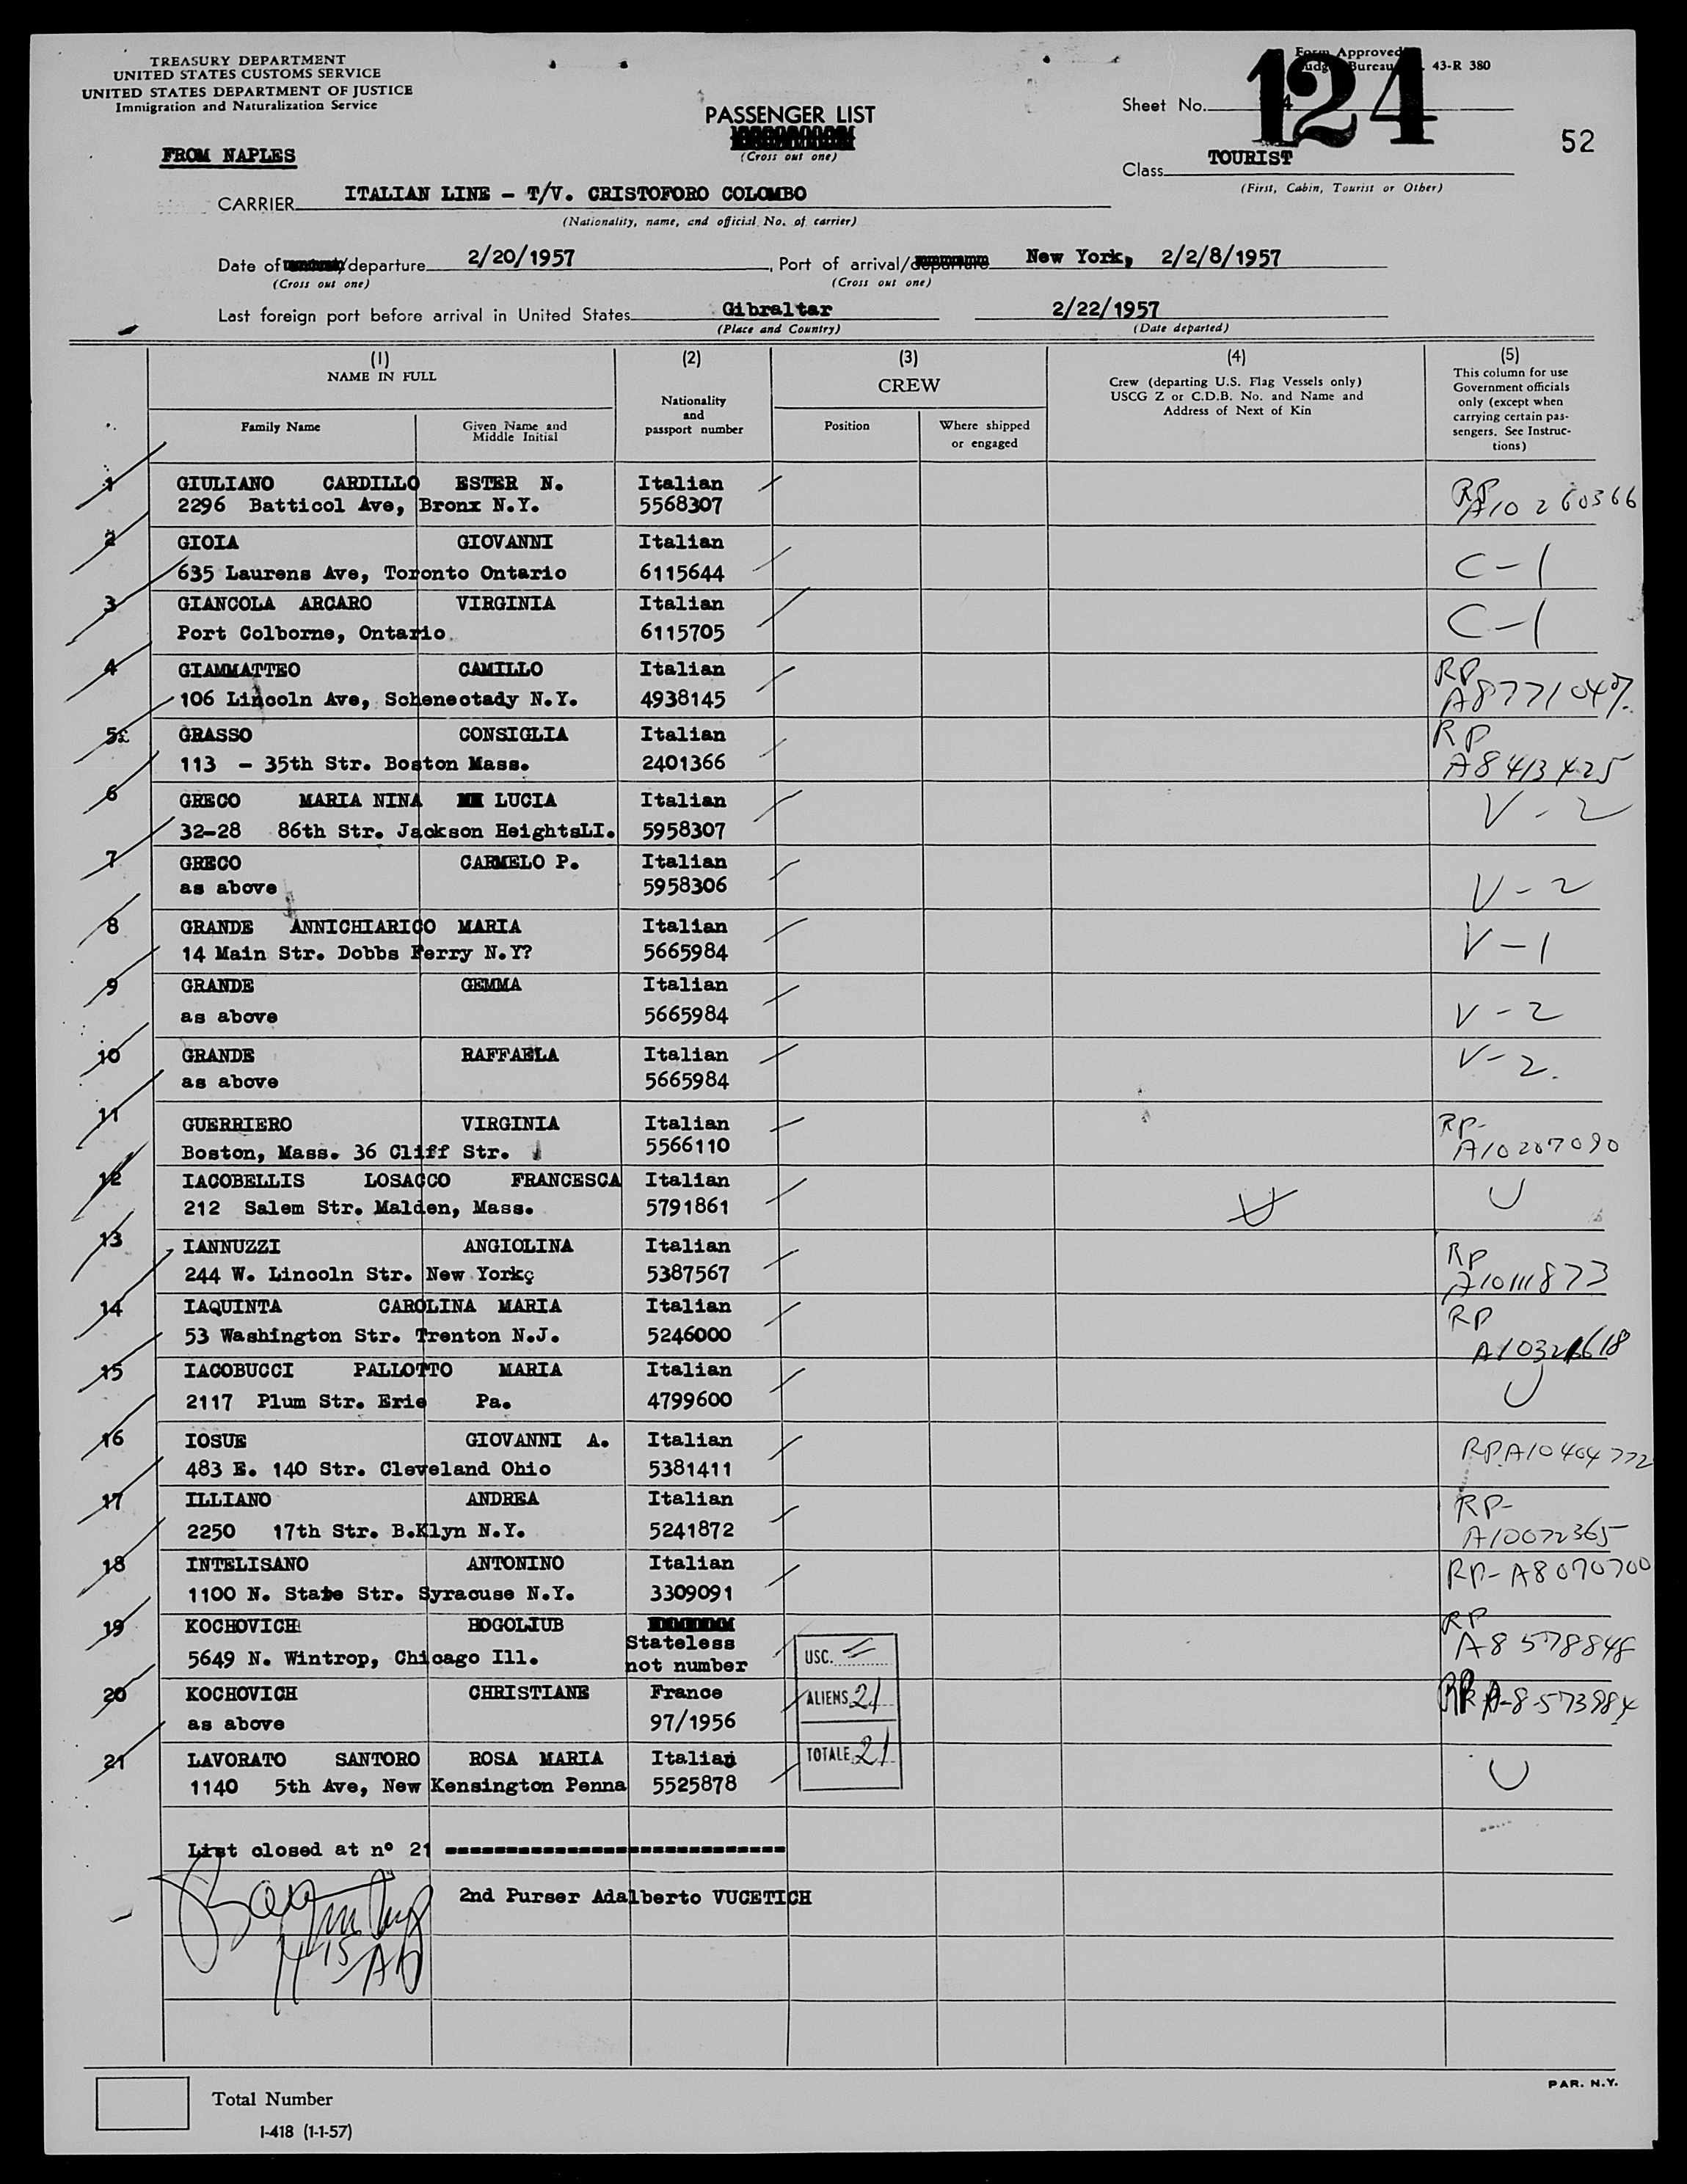 TREASURY DEPARTMENT
UNITED STATES CUSTOMS SERVICE
UNITED STATES DEPARTMENT OF JUSTICE
Immigration and Naturalization Service
Form Approved
Budget Bureau 43-R 380
124
Sheet No.
52
PASSENGER LIST
(Cross out one)
FROM NAPLES
Class TOURIST
(First, Cabin, Tourist or Other)
CARRIER ITALIAN LINE - T/V. CRISTOFORO COLOMBO
(Nationality, name, and official No. of carrier)
Date of departure 2/20/1957, Port of arrival/departure New York, 2/2/8/1957
(Cross out one) (Cross out one)
Last foreign port before arrival in United States Gibraltar 2/22/1957
(Place and Country) (Date departed)
(1) (2) (3) (4) (5)
NAME IN FULL
Family Name
Given Name and Middle Initial
Nationality and passport number
CREW
Position
Where shipped or engaged
Crew (departing U.S. Flag Vessels only)
USCG Z or C.D.B. No. and Name and
Address of Next of Kin
This column for use
Government officials
only (except when
carrying certain pas-
sengers. See Instruc-
tions)
1 GIULIANO CARDILLO ESTER N. Italian RP
2296 Batticol Ave, Bronx N.Y. 5568307 A10 260366
2 GIOIA GIOVANNI Italian
635 Laurens Ave, Toronto Ontario 6115644 C-1
3 GIANCOLA ARCARO VIRGINIA Italian
Port Colborne, Ontario 6115705 C-1
4 GIAMMATTEO CAMILLO Italian RP
106 Lincoln Ave, Schenectady N.Y. 4938145
5 GRASSO CONSIGLIA Italian RP
113 - 35th Str. Boston Mass. 2401366 A8413425
6 GRECO MARIA NINA LUCIA Italian V-2
32-28 86th Str. Jackson HeightsLI. 5958307
7 GRECO CARMELO P. Italian
as above 5958306 V-2
8 GRANDE ANNICHIARICO MARIA Italian
14 Main Str. Dobbs Ferry N.Y? 5665984 V-1
9 GRANDE GEMMA Italian
as above 5665984 V-2
10 GRANDE RAFFAELA Italian V-2.
as above 5665984
11 GUERRIERO VIRGINIA Italian RP-
Boston, Mass. 36 Cliff Str. 5566110 A10207090
12 IACOBELLIS LOSACCO FRANCESCA Italian U
212 Salem Str. Malden, Mass. 5791861 U
13 IANNUZZI ANGIOLINA Italian RP
244 W. Lincoln Str. New Yorkç 5387567 A10111873
14 IAQUINTA CAROLINA MARIA Italian RP
53 Washington Str. Trenton N.J. 5246000
15 IACOBUCCI PALLOTTO MARIA Italian U
2117 Plum Str. Erie Pa. 4799600
16 IOSUE GIOVANNI A. Italian RP.A10404772
483 E. 140 Str. Cleveland Ohio 5381411
17 ILLIANO ANDREA Italian RP-
2250 17th Str. B.Klyn N.Y. 5241872 A10072365
18 INTELISANO ANTONINO Italian RP-A8070700
1100 N. State Str. Syracuse N.Y. 3309091
19 KOCHOVICH BOGOLJUB RP
Stateless
5649 N. Wintrop, Chicago Ill. not number A8 578848
20 KOCHOVICH CHRISTIANE France A-8-573984
as above 97/1956
21 LAVORATO SANTORO ROSA MARIA Italian U
1140 5th Ave, New Kensington Penna 5525878
USC.
ALIENS 21
TOTALE 21
List closed at nº 21
2nd Purser Adalberto VUCETICH
Total Number
I-418 (1-1-57)
PAR. N.Y.